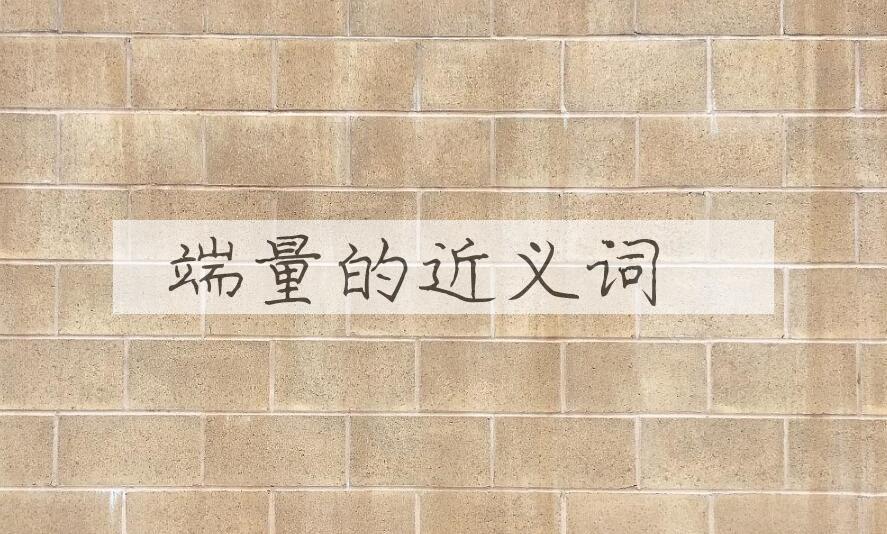 端量的近义词